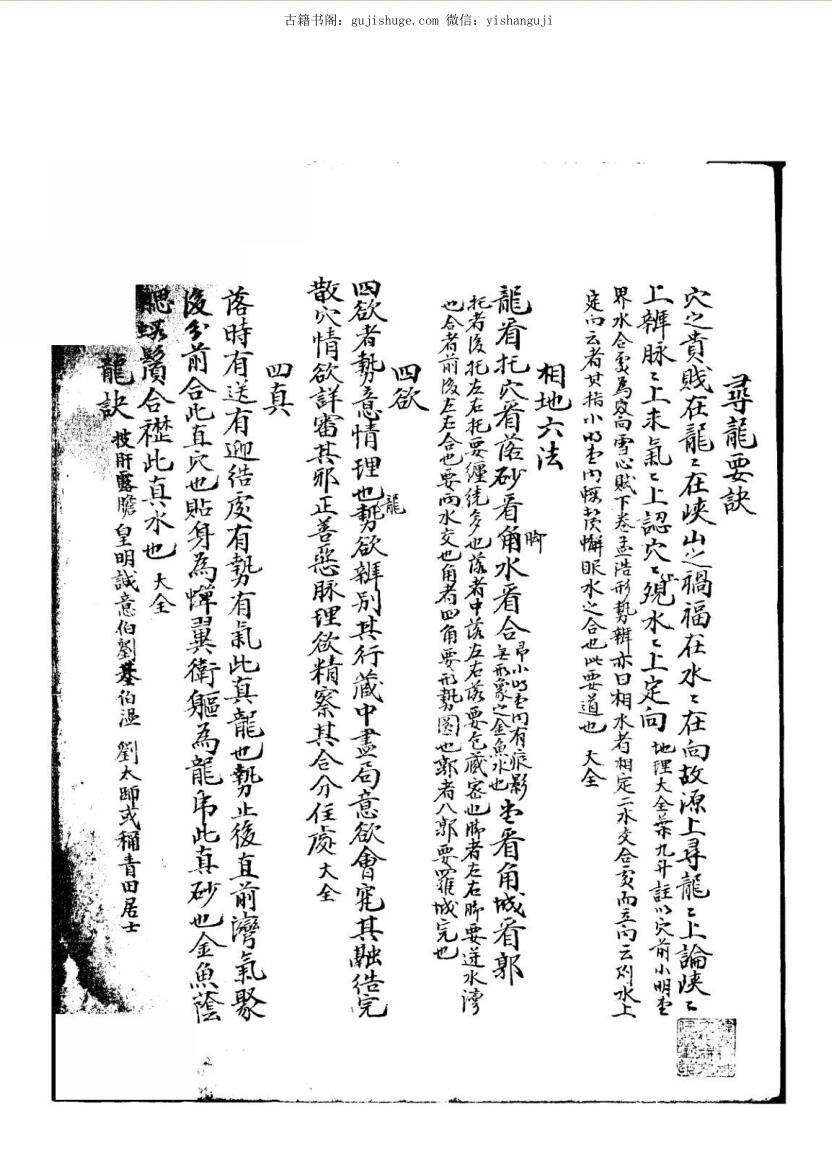 古籍书阁：gujishuge.com 微信：yishanguji
尋龍要訣
穴之貴賤在龍〻在峽山之禍福在水〻在向故源上尋龍〻上論峽〻
上辨脉〻上来氣〻上認穴〻現水〻上定向
地理大全葉九升註以穴前小明堂
界水合處為定向雪心賦下卷孟浩形勢辨亦曰相水者相定二水交合處而立向云則水上
定向云者其指小明堂内水之合也此要道也 大全
相地六法
龍看托穴看落砂看角水看合
脚
即小明堂内有痕影
無形象之金魚水也
堂看角城看郭
托者後托左右托要纏繞多也落者中落左右落要包藏密也脚者左右脚要逆水灣
也合者前後左右合也要兩水交也角者四角要形勢圓也郭者八郭要羅城完也
四欲
四欲者勢意情理也勢欲辨别其行藏中盡局意欲會究其融結完
龍
散穴情欲詳審其邪正善惡脉理欲精察其合分住處 大全
四真
落時有送有迎結處有勢有氣此真龍也勢止後直前灣氣聚
後分前合此真穴也貼身為蟬翼衛軀為龍虎此真砂也金魚蔭
腮蝦鬚合襟此真水也 大全
龍訣 披肝露膽 皇明誠意伯劉基伯温 劉太師或稱青田居士